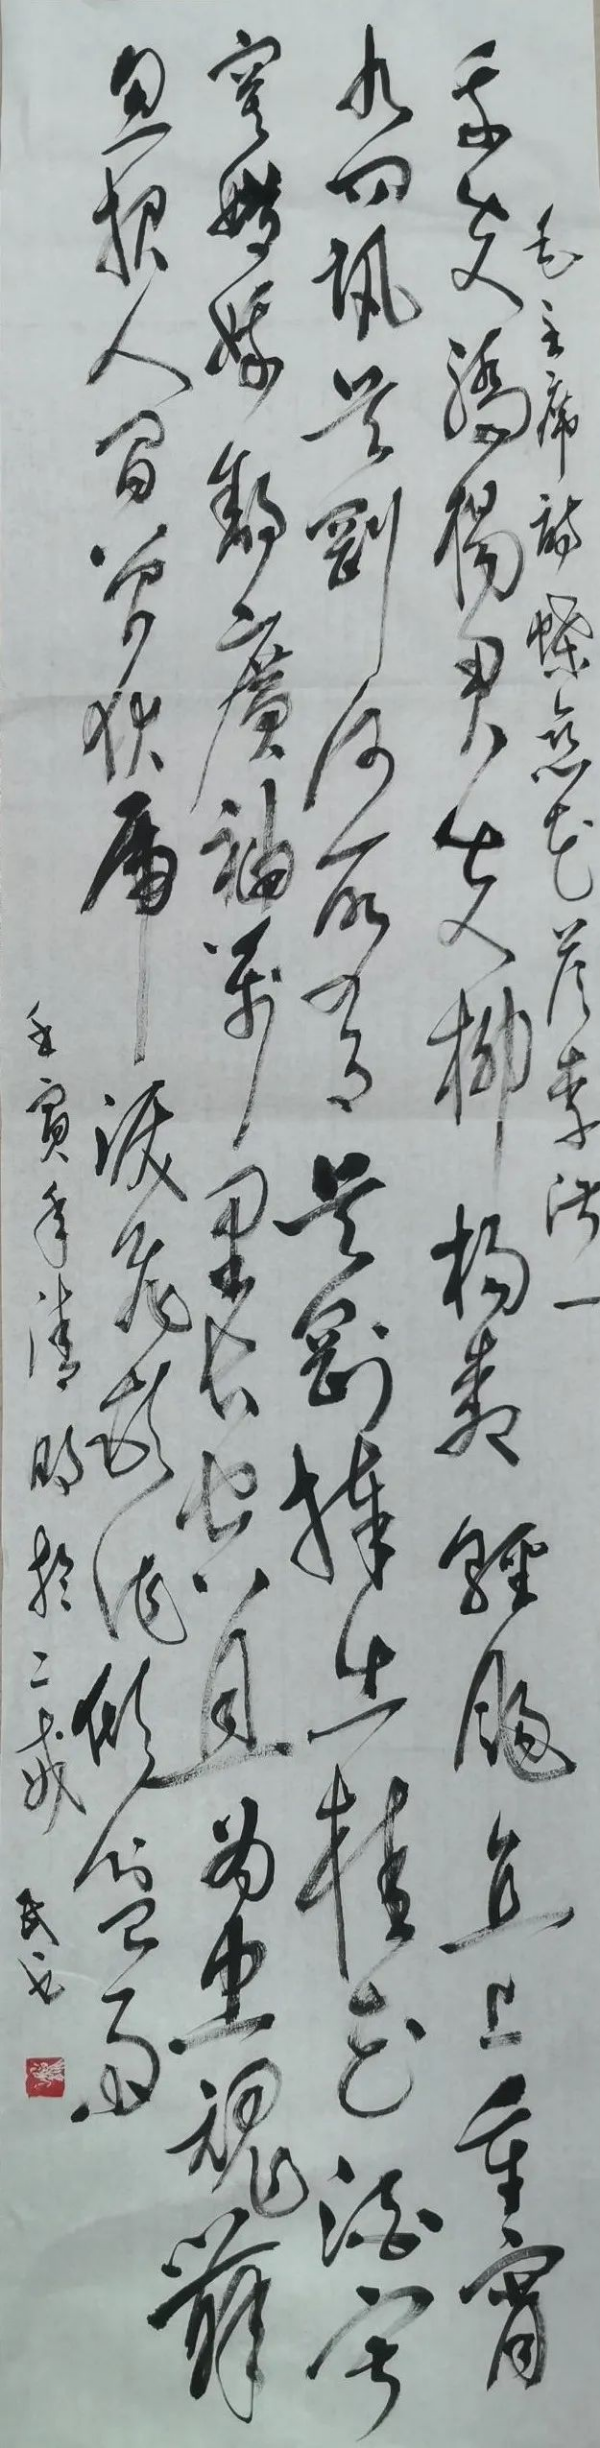 毛主席詩蝶戀花答李淑一
我失驕楊君失柳楊柳輕颺直上重霄
九问訊吴剛何所有吴剛捧出桂花酒寂
寞嫦娥舒廣袖萬里長空且为忠魂舞
忽报人间曾伏虎淚飛顿作倾盆雨
壬寅年清明於二